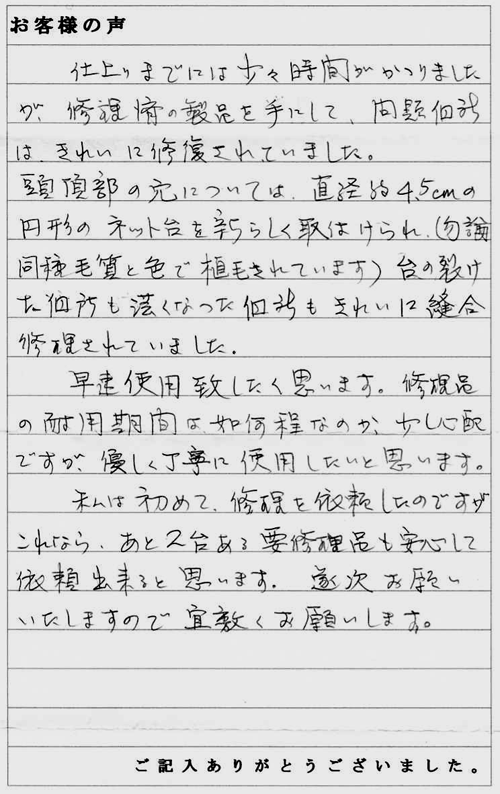 お客様の声
仕上りまでには少々時間がかかりました
が、修理済の製品を手にして、問題個所
は、きれいに修復されていました。
頭頂部の穴については、直径約4.5cmの
円形のネット台を新らしく取付けられ、(勿論
同種毛質と色で植毛されています)台の裂け
た個所も薄くなった個所もきれいに縫合
修理されていました。
早速使用致したく思います。修理品
の耐用期間は如何程なのか、少し心配
ですが、優しく丁寧に使用したいと思います。
私は初めて、修理を依頼したのですが
これなら、あと2台ある要修理品も安心して
依頼出来ると思います。逐次お願い
いたしますので宜敷くお願いします。
ご記入ありがとうございました。